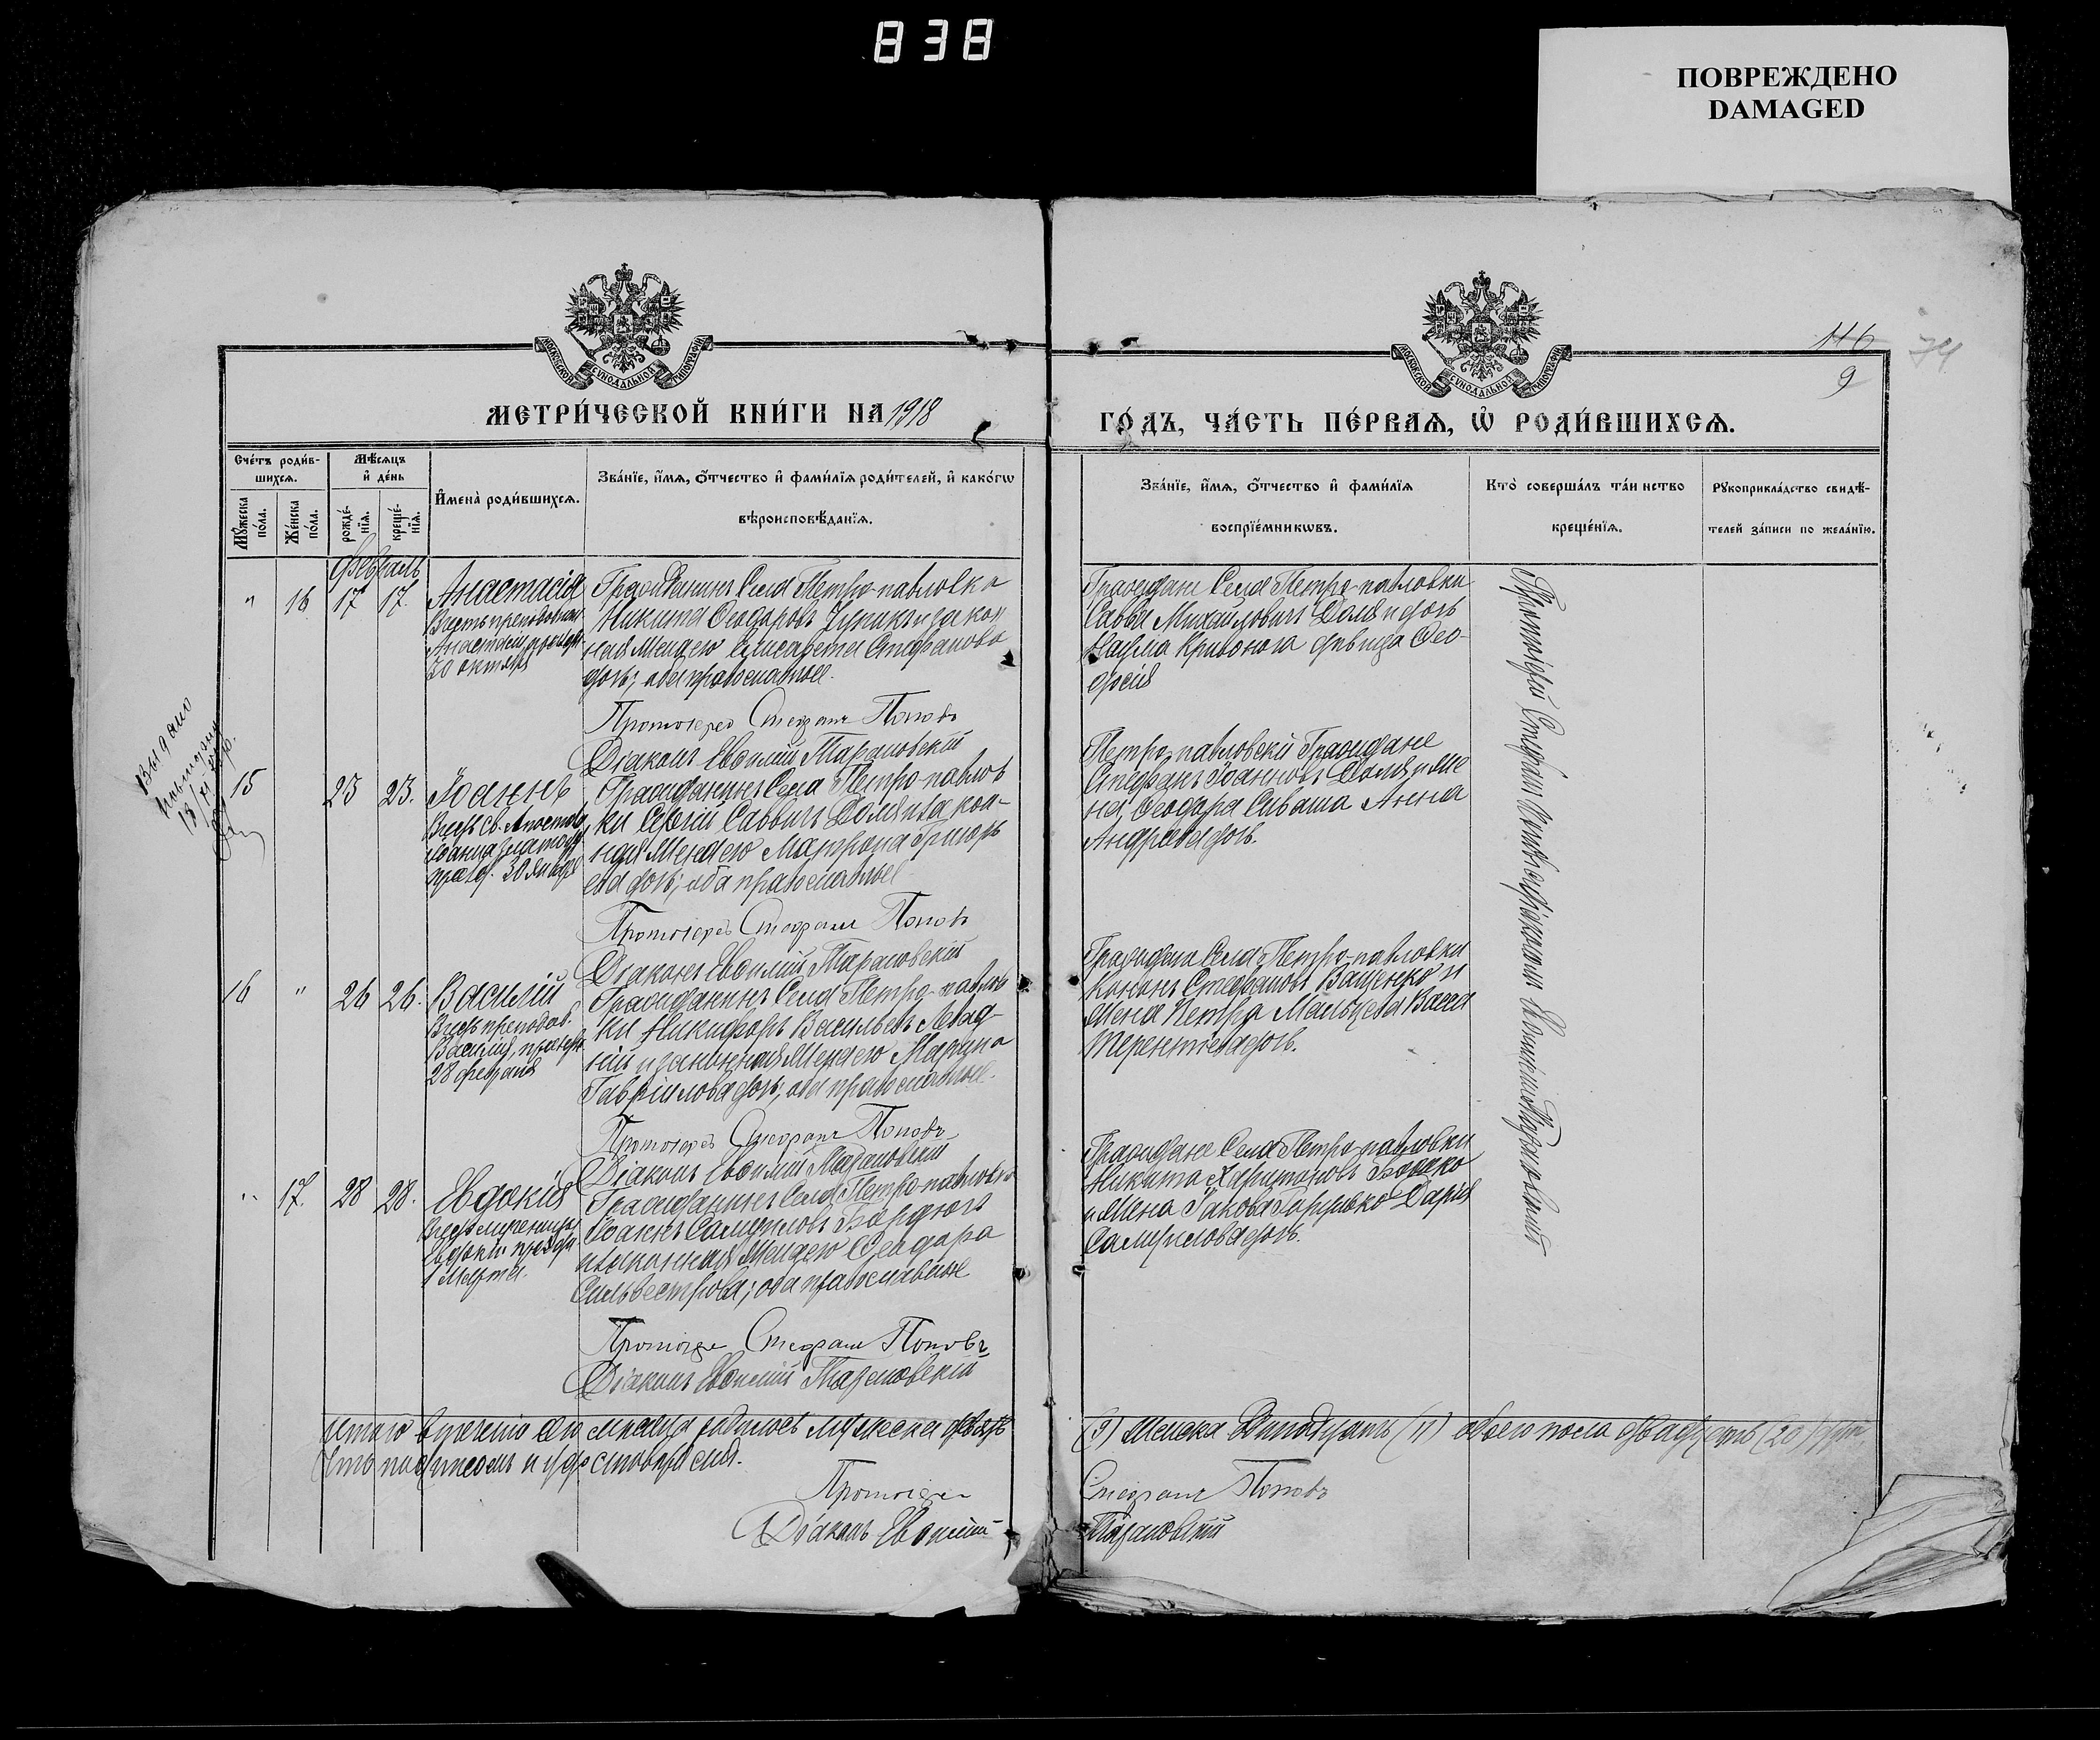 838
ПОВРЕЖДЕНО
DAMAGED
МОСКОВСКОЙ СѴНОДАЛЬНОЙ ТИПОГРАФІИ
МОСКОВСКОЙ СѴНОДАЛЬНОЙ ТИПОГРАФІИ
116
74
9
МЕТРИ́ЧЕСКОЙ КНИ́ГИ НА 1918
ГО́ДЪ, ЧА́СТЬ ПЕ́РВАѦ, Ѡ҆ РОДИ́ВШИХСѦ.
Сче́тъ роди́в-
шихсѧ.
Мꙋ́жеска
по́ла.
Же́нска
по́ла.
Мѣ́сѧцъ
и҆ де́нь
рожде́-
нїѧ.
креще́-
нїѧ.
И҆мена̀ роди́вшихсѧ.
Зва́нїе, и҆́мѧ, ѻ҆́тчество и҆ фами́лїѧ роди́телей, и҆ како́гѡ
вѣроисповѣ́данїѧ.
Зва́нїе, и҆́мѧ, ѻ҆́тчество и҆ фами́лїѧ
воспрїе́мникѡвъ.
Кто̀ соверша́лъ та́инство
креще́нїѧ.
Рꙋкоприкла́дство свидѣ́-
телей за́писи по жела́нїю.
Февраль
" 16 17 17.
Анастасія
Въ честь преподобной
Анастасіи
Гражданинъ Села Петро-павловки
Никита Ѳеодоровъ и закон
ная жена его Елисавета Стефанова
дочь; оба православные.
Протоіерей Стефанъ Поповъ
Діаконъ Евѳимій Тарановскій
Граждане Села Петро-павловки
Савва Михайловичъ Доля и дочь
Наума Кривоноса дѣвица Ѳео-
досія
Выдано
15 23 23.
Іоаннъ
Въ честь Св.
Іоанна Златоуст
праздн. 30 Января
Гражданинъ Села Петро-павлов
ки Сергій Саввичъ Доля и закон-
ная жена его Матрона Григорь
ева дочь; оба православные
Протоіерей Стефанъ Поповъ
Діаконъ Евѳимій Тарановскій
Петро-павловскій Граждане
Стефанъ Іоанновъ Доля и же
на Ѳеодора Сиваша Анна
Андреева дочь.
16 " 26 26.
Василій
Въ честь преподоб.
Василія,
28 февраля
Гражданинъ Села Петро-павлов
ки Никифоръ Васильевъ
и законная жена его Марина
Гавріилова дочь; оба православные.
Протоіерей Стефанъ Поповъ
Діаконъ Евѳимій Тарановскій
Граждане Села Петро-павловки
Кононъ Стефановъ Ващенко и
жена Петра Мальцева Васса
Терентіева дочь.
" 17. 28 28.
Евдокія
Въ честь мученицы
Евдокіи
1 Марта.
Гражданинъ Села Петро-павловки
Іоаннъ Самуиловъ Бондюгъ
и законная жена его Ѳеодора
Сильвестрова; оба православные
Протоіерей Стефанъ Поповъ
Діаконъ Евѳимій Тарановскій
Граждане Села Петро-павловки
Никита Харитоновъ Божко
и жена Іакова Дарія
Самуилова дочь.
Протоіерей Стефанъ Поповъ съ діакономъ Евѳиміемъ Тарановскимъ
Итого въ теченіе сего мѣсяца родилось мужеска девять
(9) женска одинадцать (11) обоего пола двадцать (20)
Что подписомъ и удостовѣряемъ.
Протоіерей Стефанъ Поповъ
Діаконъ Евѳимій Тарановскій